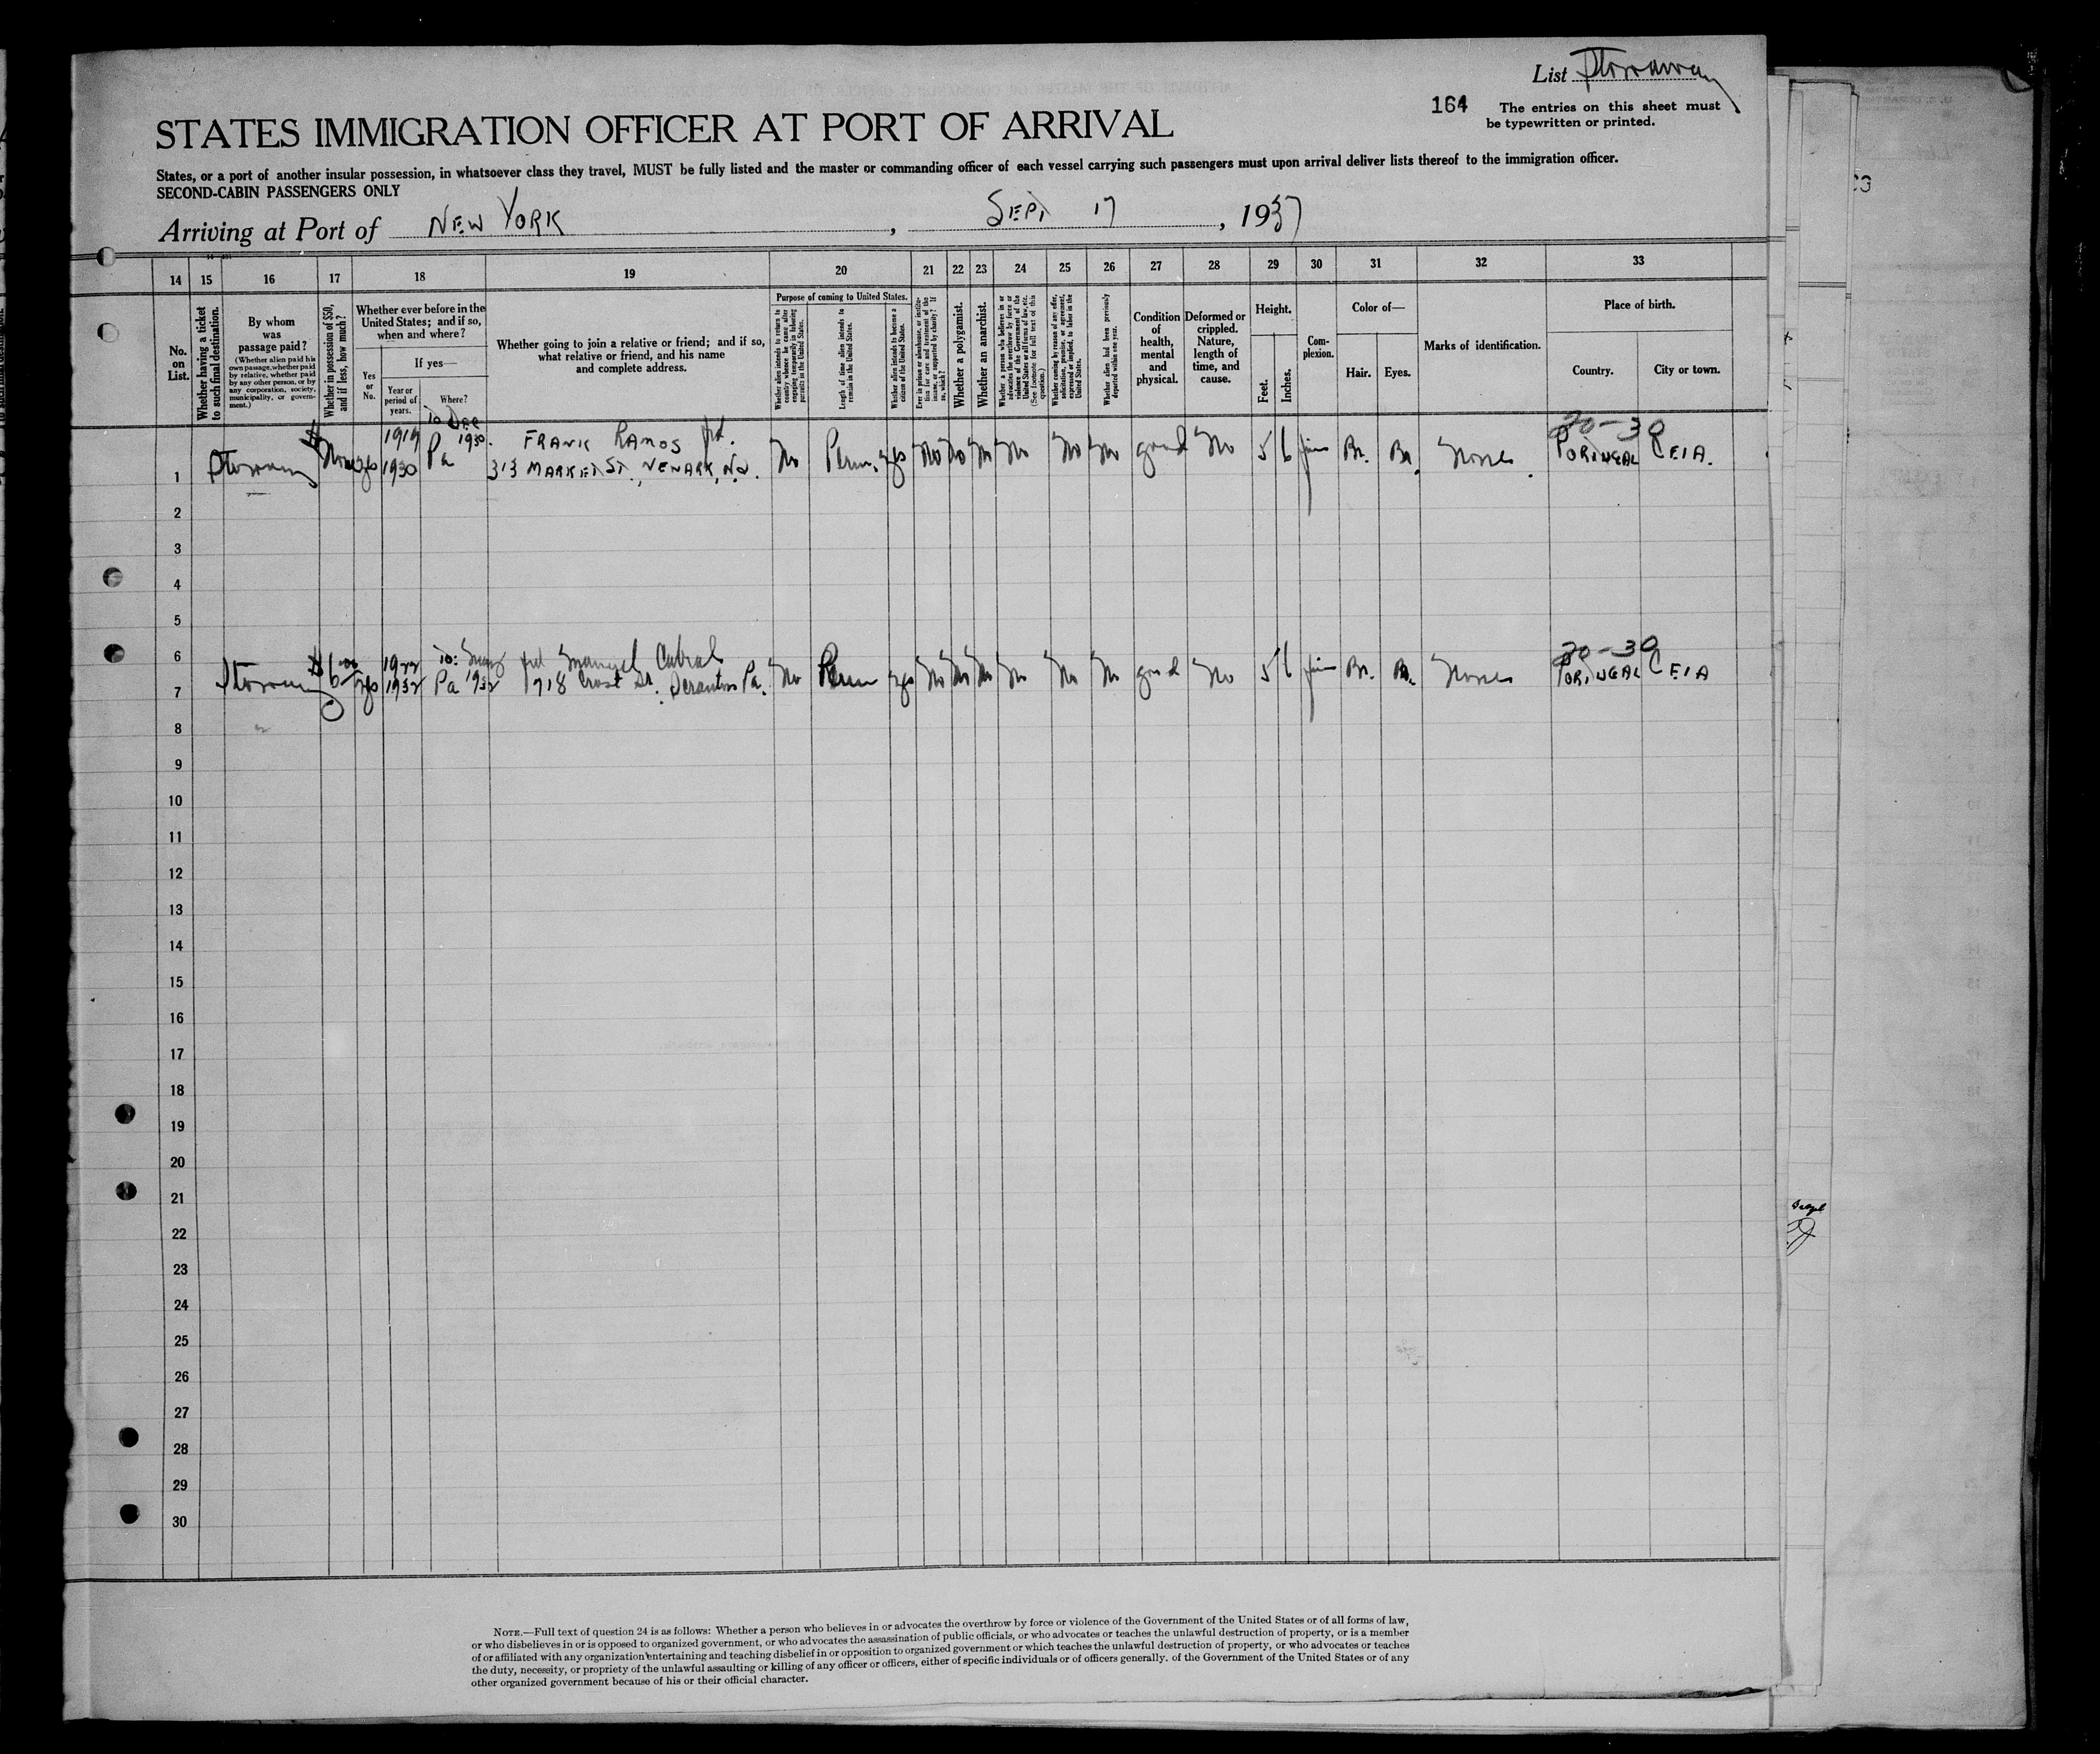 List Stowaway
164 The entries on this sheet must
be typewritten or printed.
STATES IMMIGRATION OFFICER AT PORT OF ARRIVAL
States, or a port of another insular possession, in whatsoever class they travel, MUST be fully listed and the master or commanding officer of each vessel carrying such passengers must upon arrival deliver lists thereof to the immigration officer.
SECOND-CABIN PASSENGERS ONLY
Arriving at Port of NEW YORK, SEPT 17, 1937
14 15 16 17 18 19 20 21 22 23 24 25 26 27 28 29 30 31 32 33
No. on List.
Whether having a ticket to such final destination.
By whom was passage paid?
(Whether alien paid his own passage, whether paid by relative, whether paid by any other person, or by any corporation, society, municipality, or government.)
Whether in possession of $50, and if less, how much?
Whether ever before in the United States; and if so, when and where?
Yes or No.
If yes—
Year or period of years.
Where?
Whether going to join a relative or friend; and if so, what relative or friend, and his name and complete address.
Purpose of coming to United States.
Whether alien intends to return to country whence he came after engaging temporarily in laboring pursuits in the United States.
Length of time alien intends to remain in the United States.
Whether alien intends to become a citizen of the United States.
Ever in prison or almshouse, or institution for care and treatment of the insane, or supported by charity? If so, which?
Whether a polygamist.
Whether an anarchist.
Whether a person who believes in or advocates the overthrow by force or violence of the Government of the United States or all forms of law, etc. (See footnote for full text of this question.)
Whether coming by reason of any offer, solicitation, promise, or agreement, expressed or implied, to labor in the United States.
Whether alien had been previously deported within one year.
Condition of health, mental and physical.
Deformed or crippled. Nature, length of time, and cause.
Height.
Feet.
Inches.
Complexion.
Color of—
Hair.
Eyes.
Marks of identification.
Place of birth.
Country.
City or town.
to Dec
1919 1930. FRANK RAMOS frd. 20-30
1 Stowaway $ None yes 1930 Pa 313 MARKET ST., NEWARK, N.J. No Perm. yes No No No No No No good No 5 6 Br. Br. None PORTUGAL CEIA.
2
3
4
5
6 1922 to: frd Manuel Cabral 20-30
7 Stowaway $6.00 yes 1932 Pa 1932 718 Cross St. Scranton Pa. No Perm yes No No No No No No good No 5 6 Br. Br. None PORTUGAL CEIA
8
9
10
11
12
13
14
15
16
17
18
19
20
21
22
23
24
25
26
27
28
29
30
NOTE.—Full text of question 24 is as follows: Whether a person who believes in or advocates the overthrow by force or violence of the Government of the United States or of all forms of law,
or who disbelieves in or is opposed to organized government, or who advocates the assassination of public officials, or who advocates or teaches the unlawful destruction of property, or is a member
of or affiliated with any organization entertaining and teaching disbelief in or opposition to organized government or which teaches the unlawful destruction of property, or who advocates or teaches
the duty, necessity, or propriety of the unlawful assaulting or killing of any officer or officers, either of specific individuals or of officers generally. of the Government of the United States or of any
other organized government because of his or their official character.